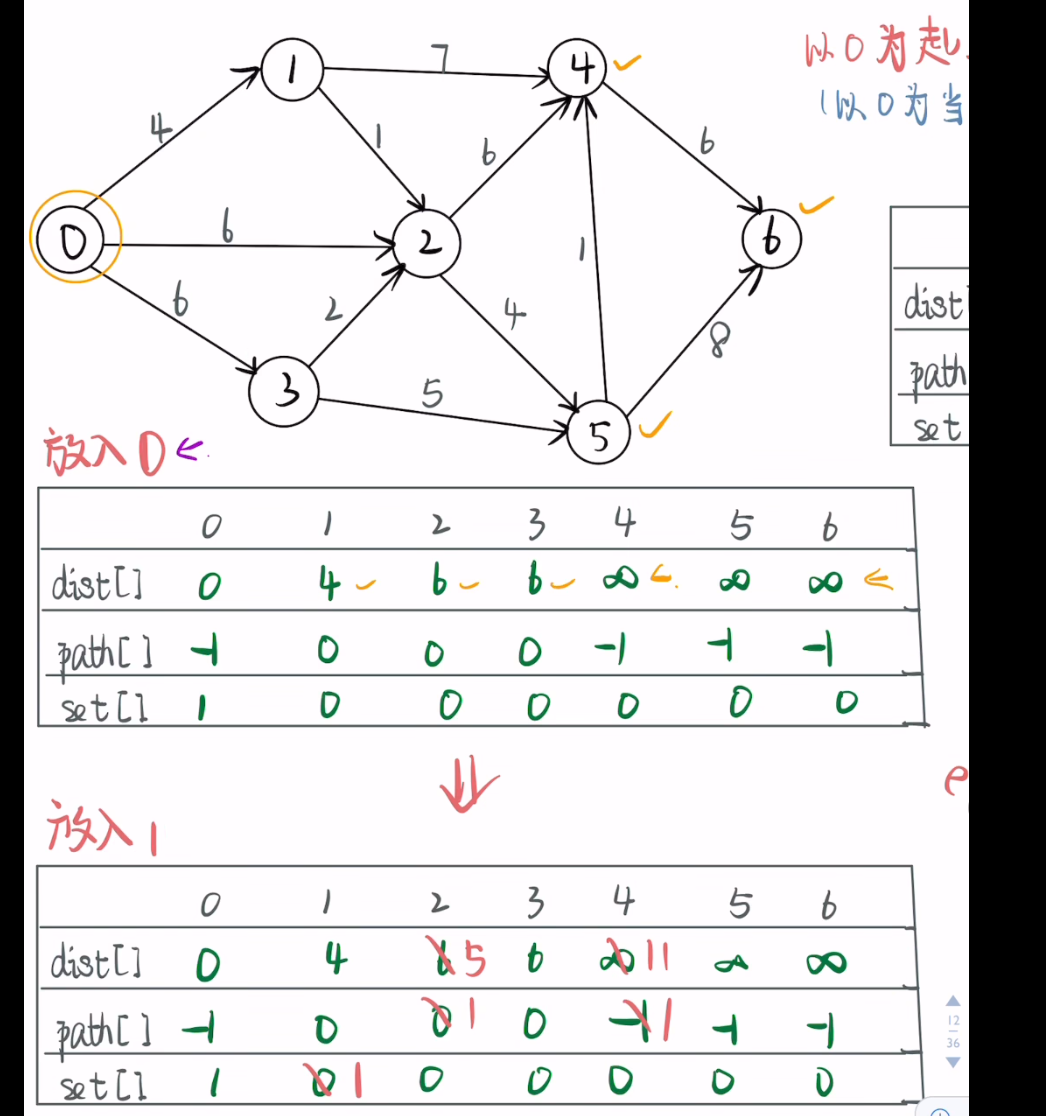 以0为起
(以0为当
1
7
4
4
1
6
6
0
6
2
6
1
6
2
4
8
3
5
5
dist[
path
set
放入0
0 1 2 3 4 5 6
dist[] 0 4 6 6 ∞ ∞ ∞
path[] -1 0 0 0 -1 -1 -1
set[] 1 0 0 0 0 0 0
放入1
0 1 2 3 4 5 6
dist[] 0 4 6 5 6 ∞ 11 ∞ ∞
path[] -1 0 0 1 0 -1 1 -1 -1
set[] 1 0 1 0 0 0 0 0
12
36